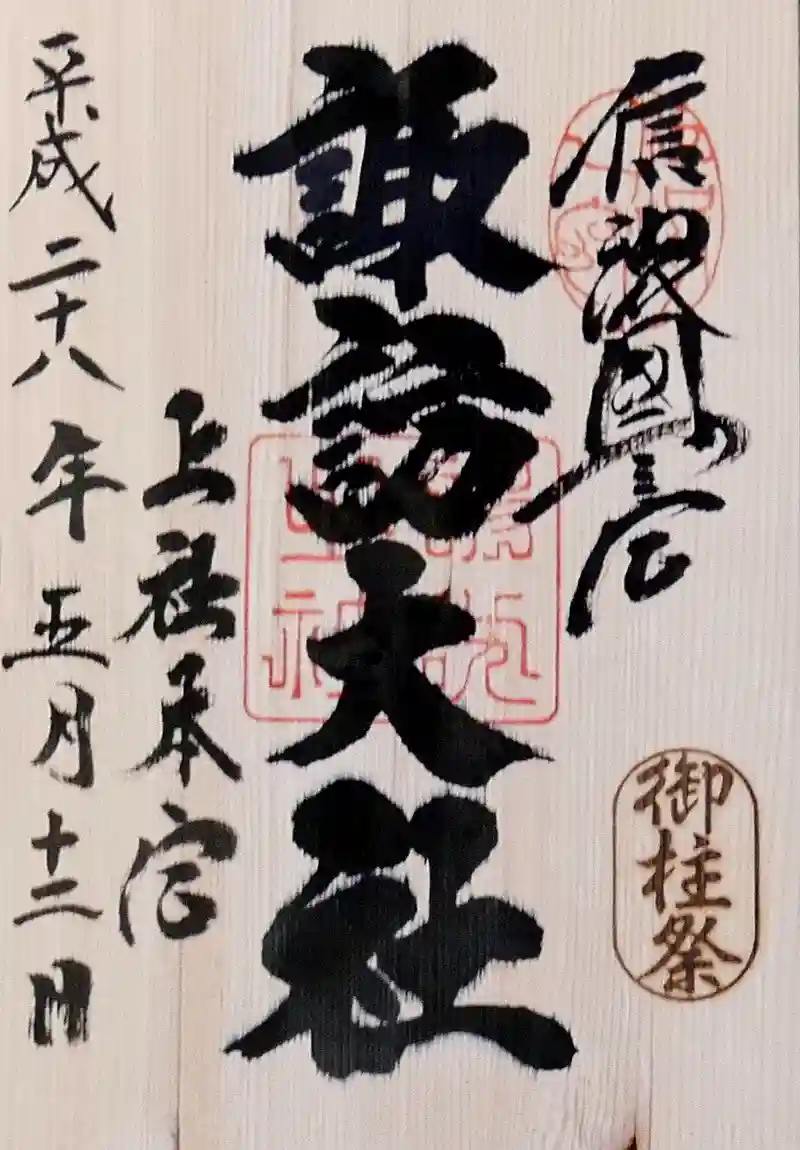 信濃國一宮
御柱祭
諏訪大社
上社本宮
平成二十八年五月十二日